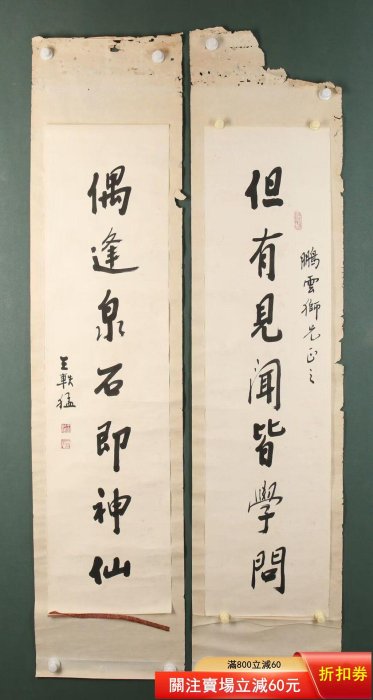 但有見聞皆學問
鵬雲獅兄正之
偶逢泉石即神仙
王軼猛
滿800立減60
關注賣場立減60元
折扣券